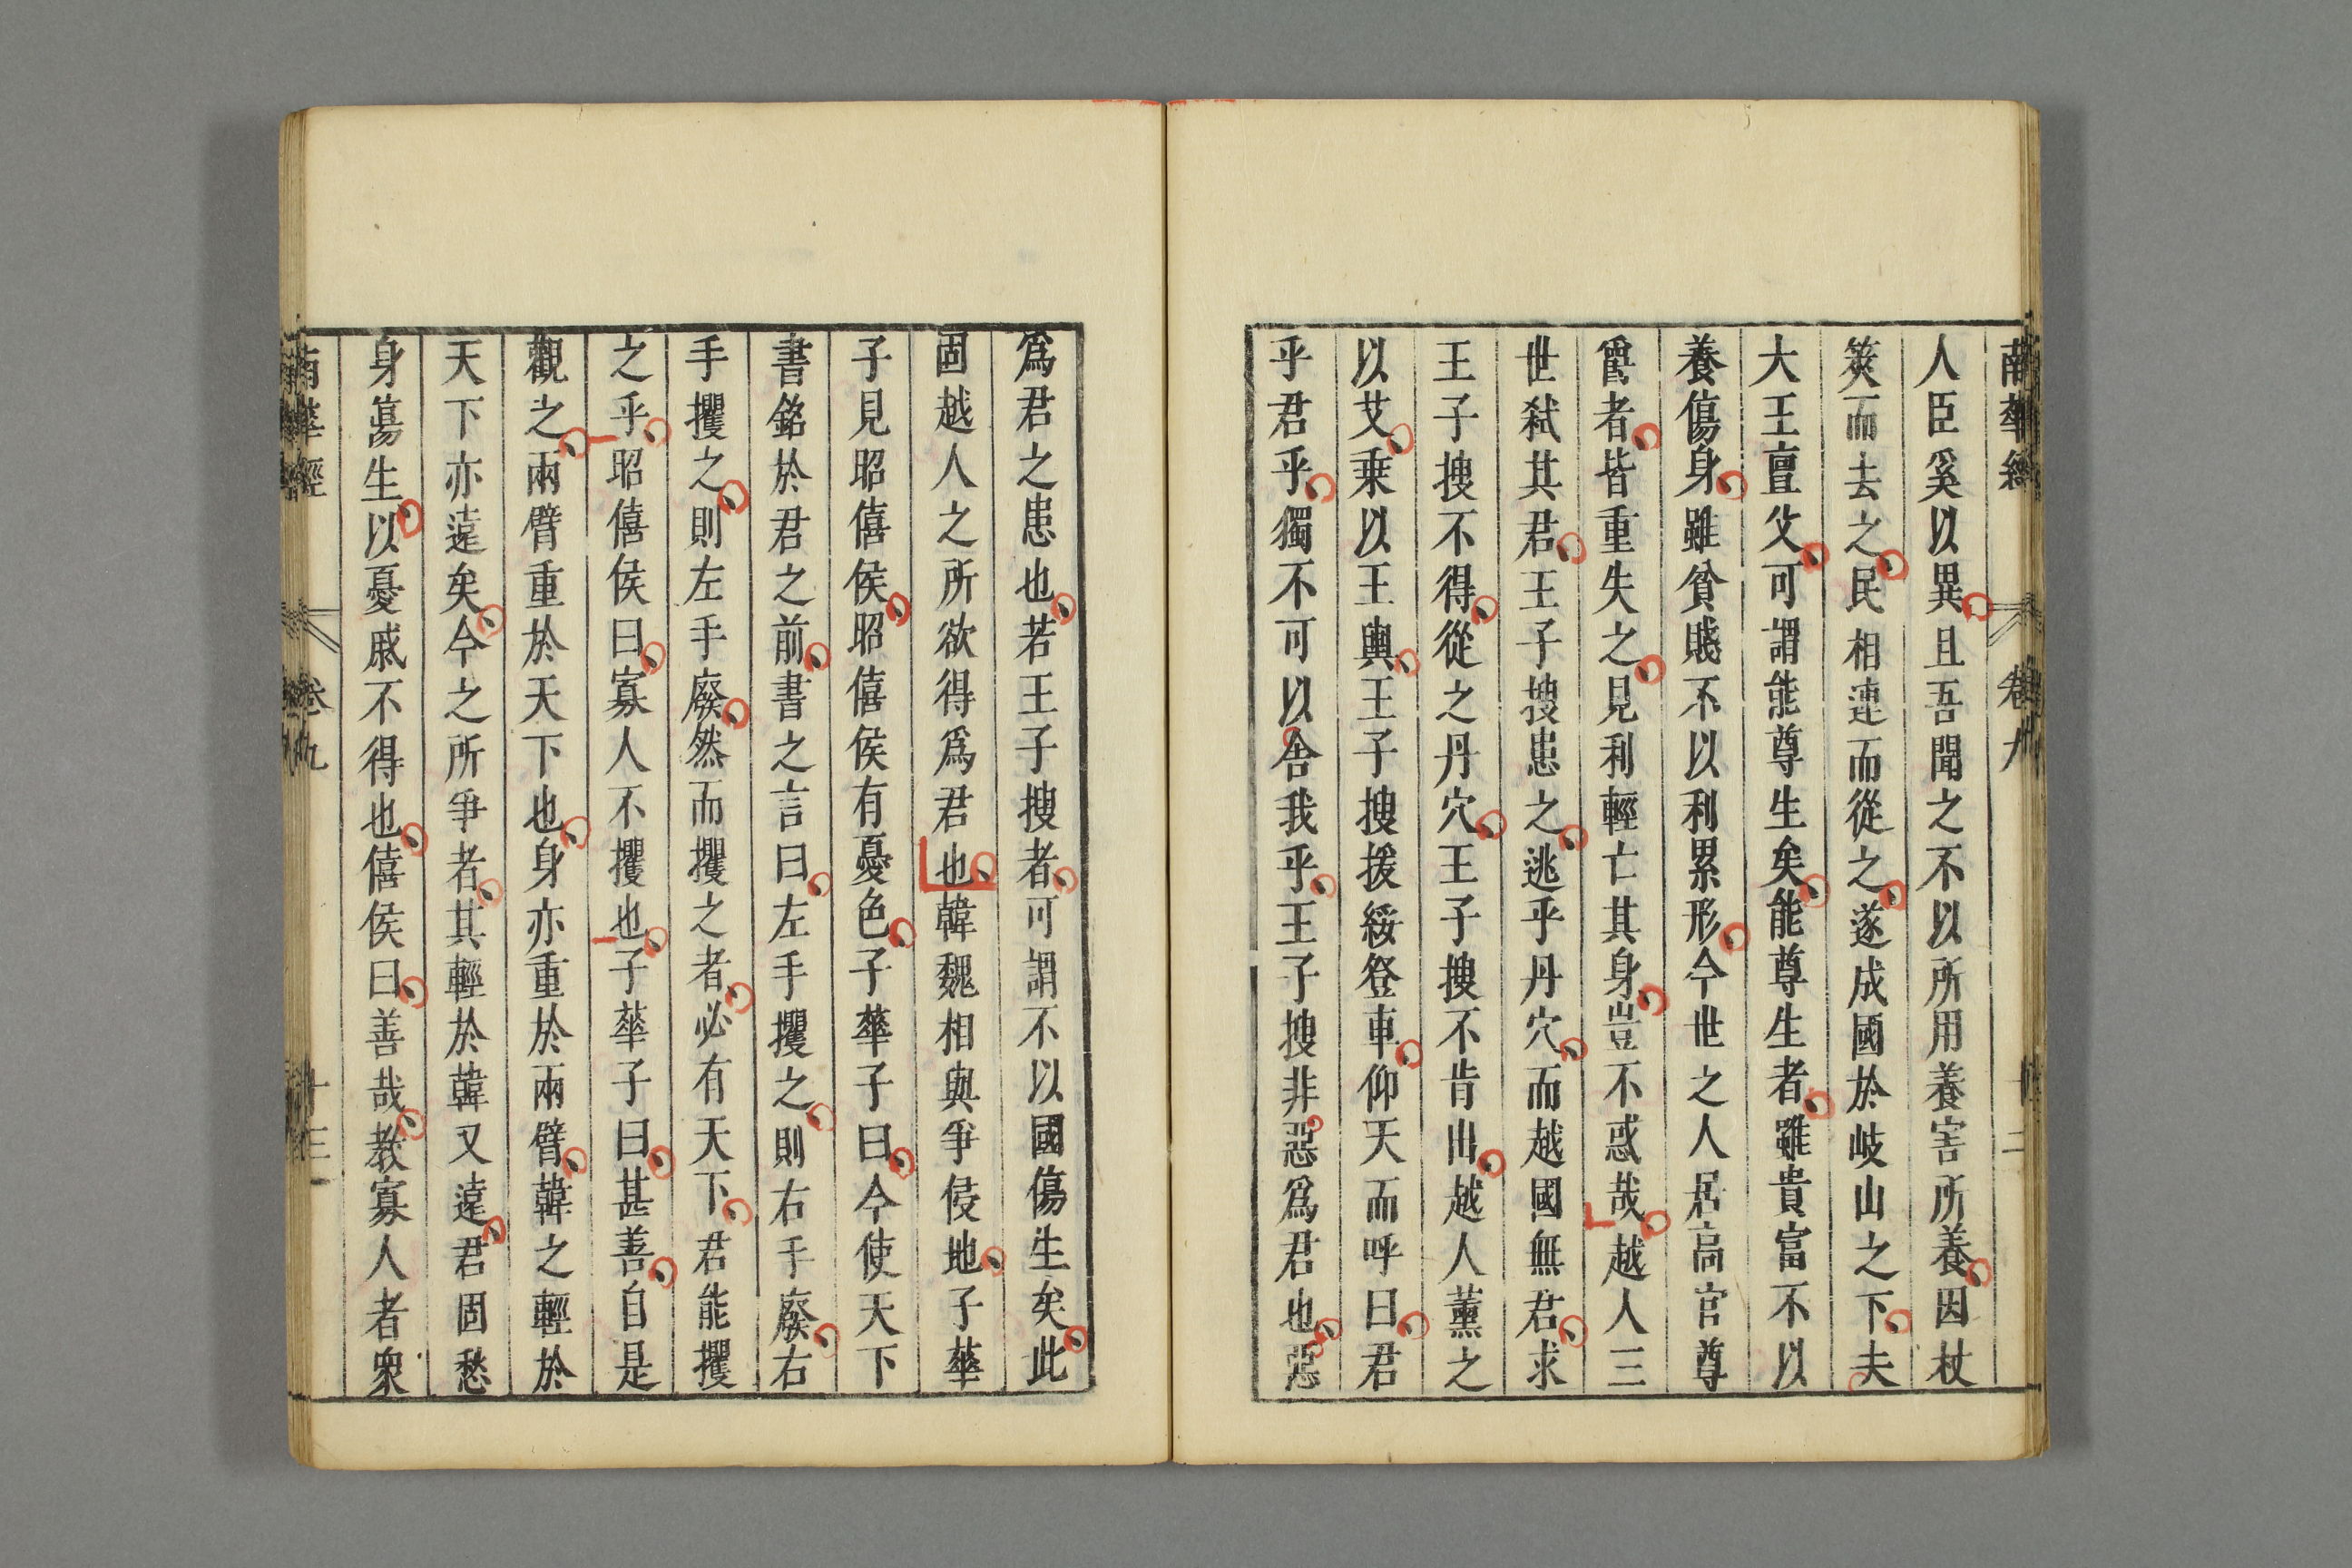 南華經 卷九
人臣奚以異且吾聞之不以所用養害所養因杖
筴而去之民相連而從之遂成國於岐山之下夫
大王亶父可謂能尊生矣能尊生者雖貴富不以
養傷身雖貧賤不以利累形今世之人居高官尊
爵者皆重失之見利輕亡其身豈不惑哉越人三
世弒其君王子搜患之逃乎丹穴而越國無君求
王子搜不得從之丹穴王子搜不肯出越人薰之
以艾乗以王輿王子搜援綏登車仰天而呼曰君
乎君乎獨不可以舍我乎王子搜非惡爲君也惡
爲君之患也若王子搜者可謂不以國傷生矣此
固越人之所欲得爲君也韓魏相與爭侵地子華
子見昭僖侯昭僖侯有憂色子華子曰今使天下
書銘於君之前書之言曰左手攫之則右手廢右
手攫之則左手廢然而攫之者必有天下君能攫
之乎昭僖侯曰寡人不攫也子華子曰甚善自是
觀之兩臂重於天下也身亦重於兩臂韓之輕於
天下亦遠矣今之所爭者其輕於韓又遠君固愁
身傷生以憂戚不得也僖侯曰善哉教寡人者衆
南華經 卷九 十三